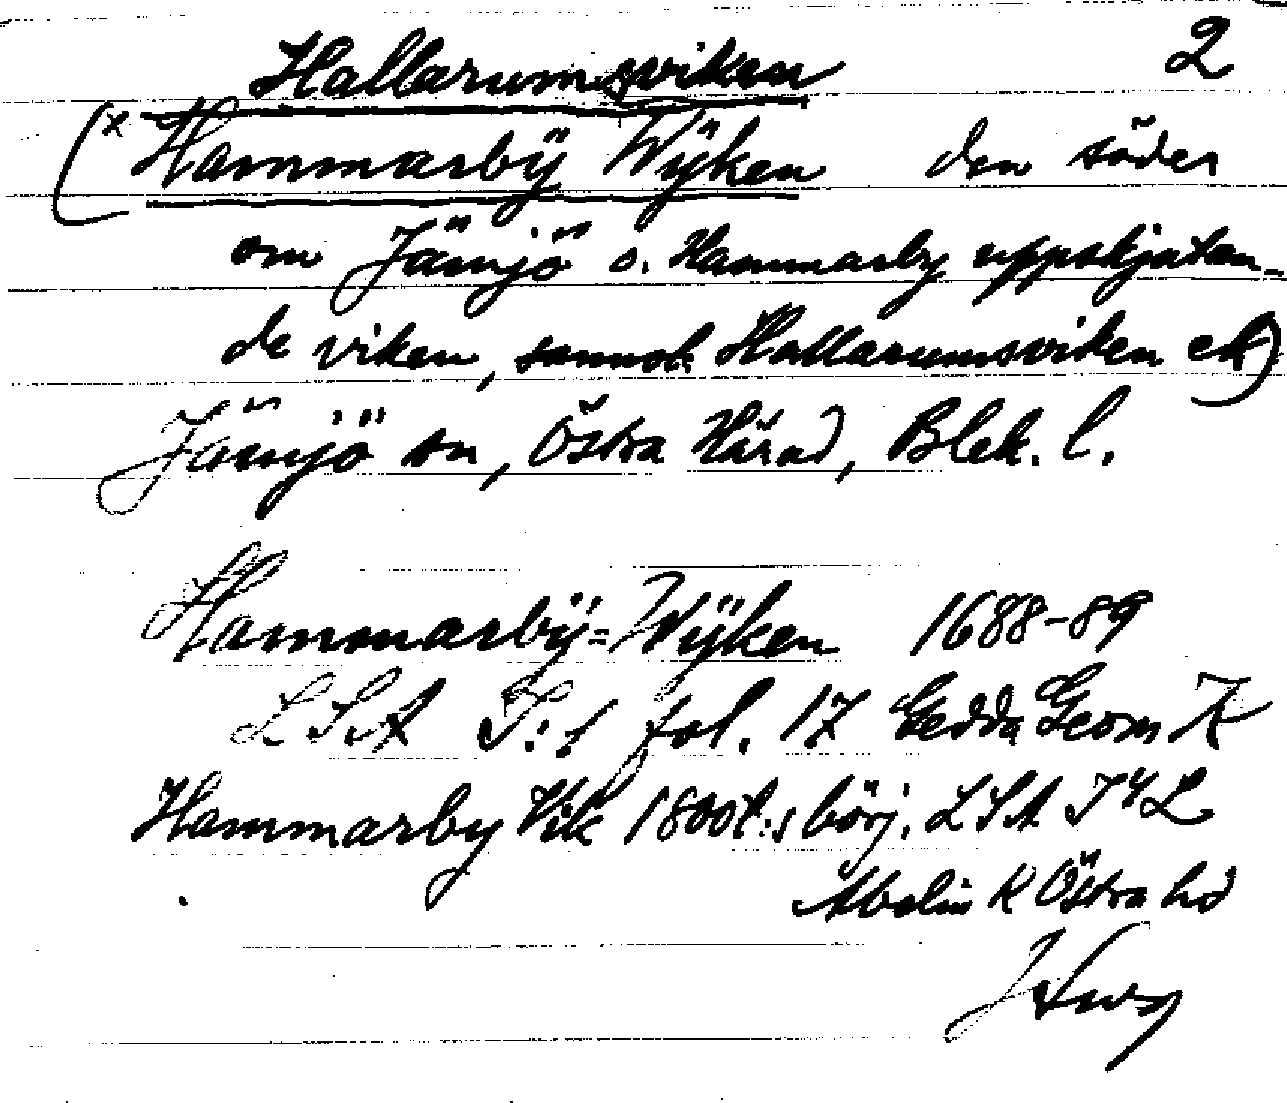 Hallarumsviken 2
(x Hammarbÿ Wÿken den söder
om Jämjö o. Hammarby uppskjutan-
de viken, sannol. Hallarumsviken ek)
Jämjö sn, Östra Härad, Blek. l.
Hammarbÿ=Wÿken 1688-89
LSA I:1 fol. 17 Gedda Geom K
Hammarby Vik 1800t:s börj. LSA
Abelin K Östra hd